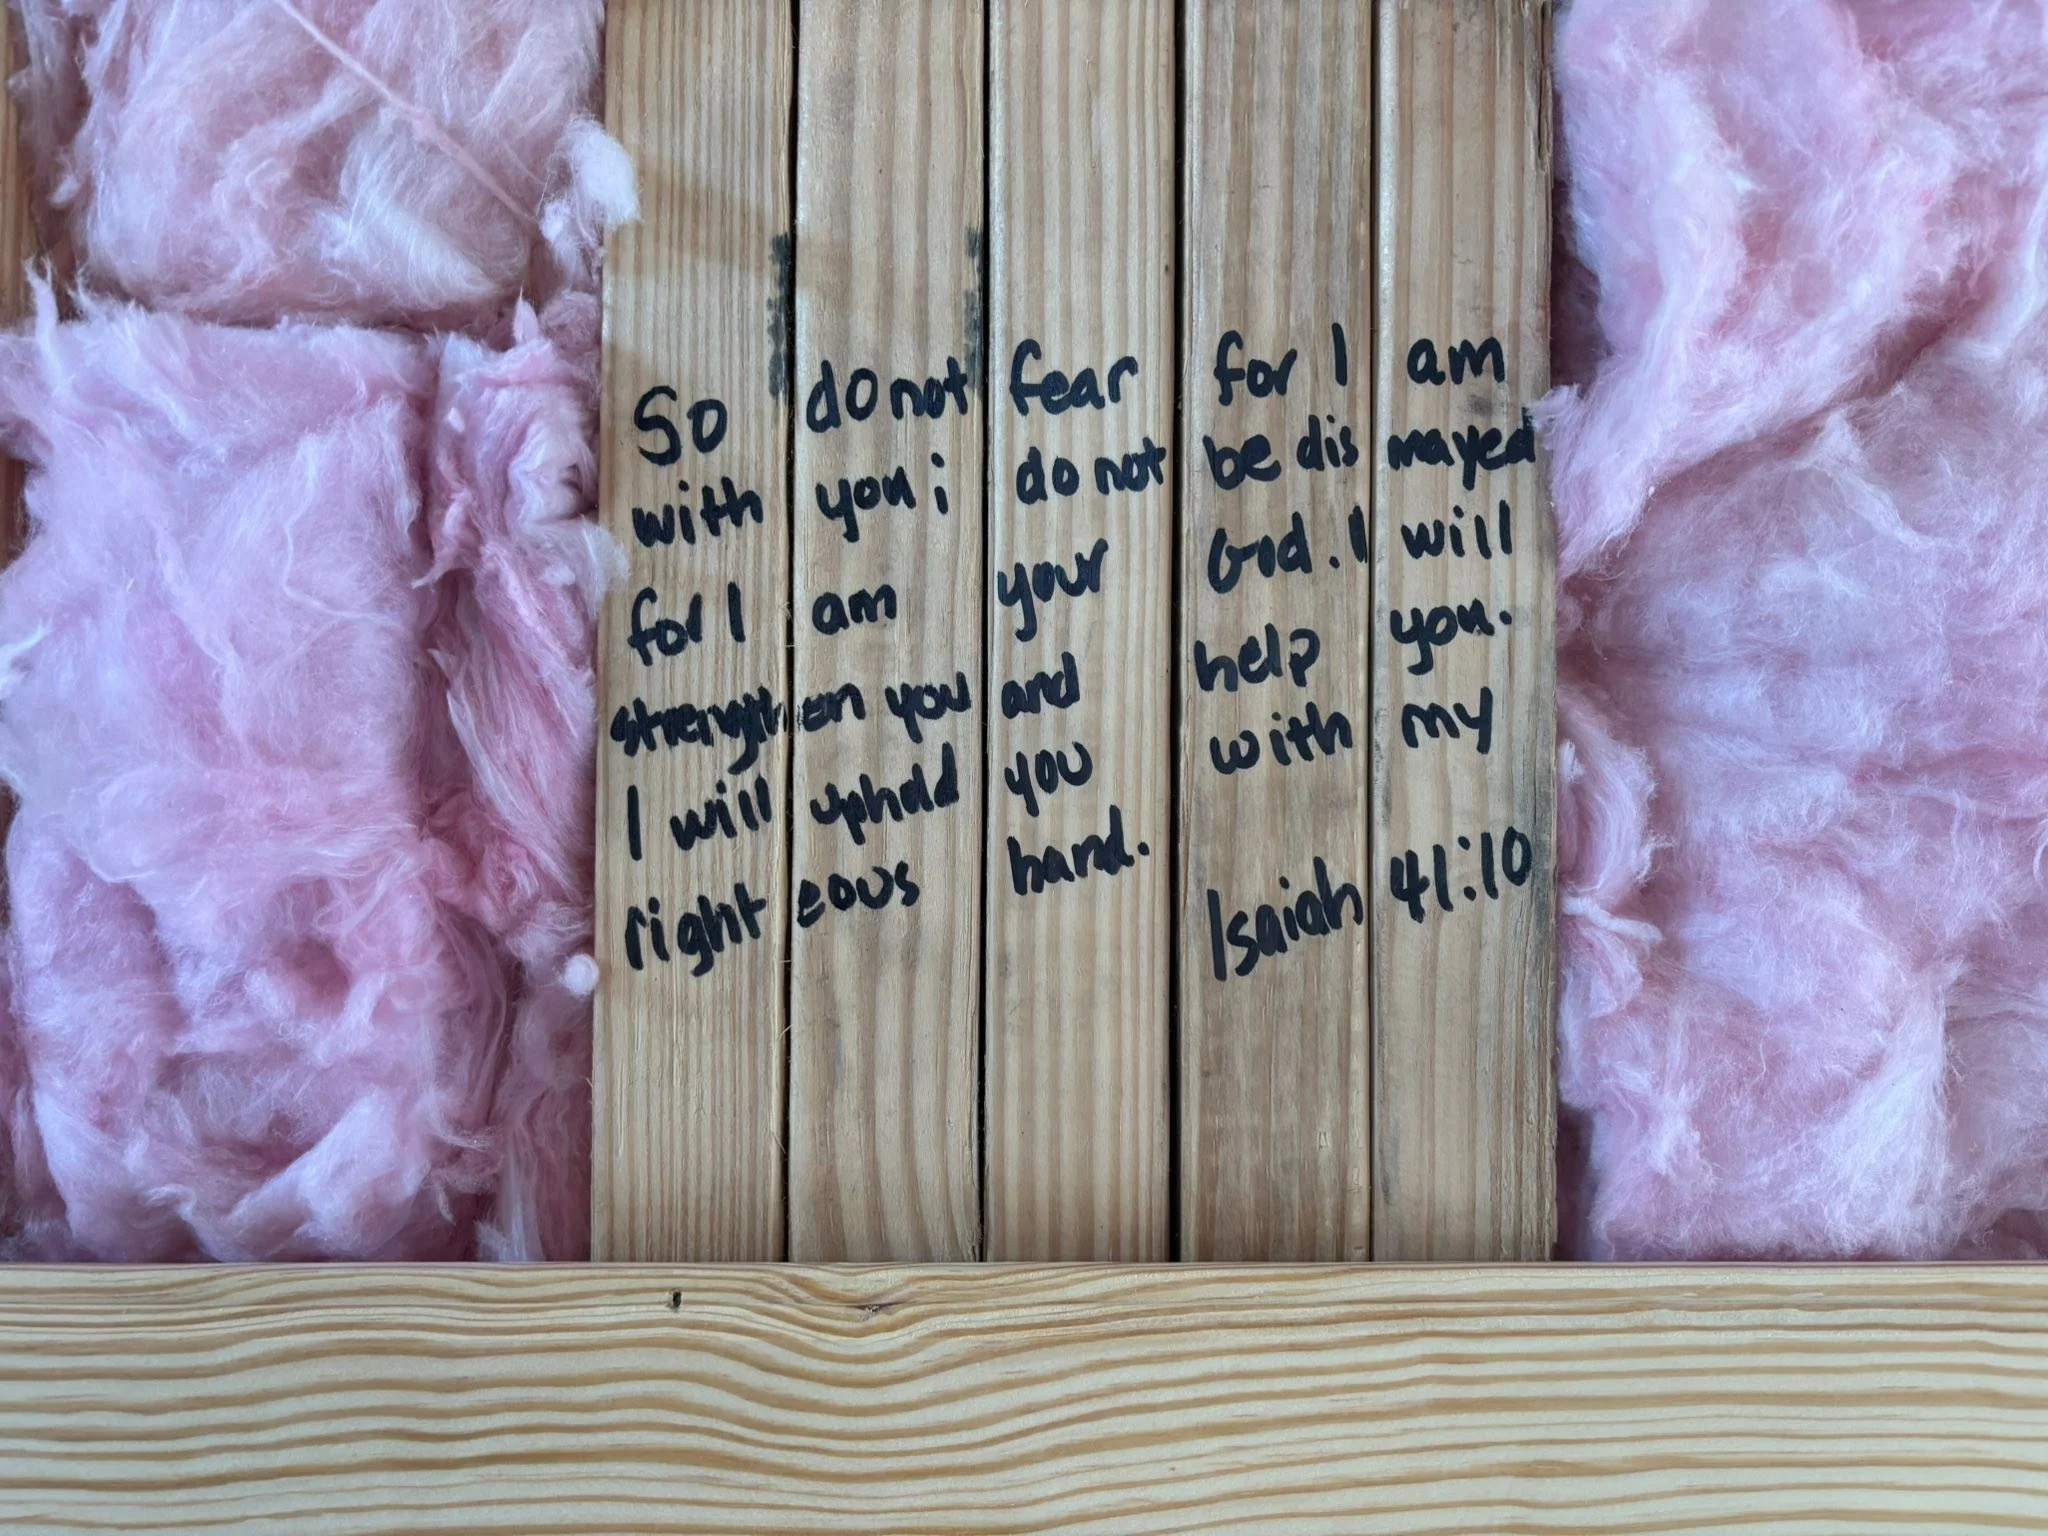 So do not fear for I am
with you; do not be dismayed
for I am your God. I will
strengthen you and help you.
I will uphold you with my
righteous hand. Isaiah 41:10